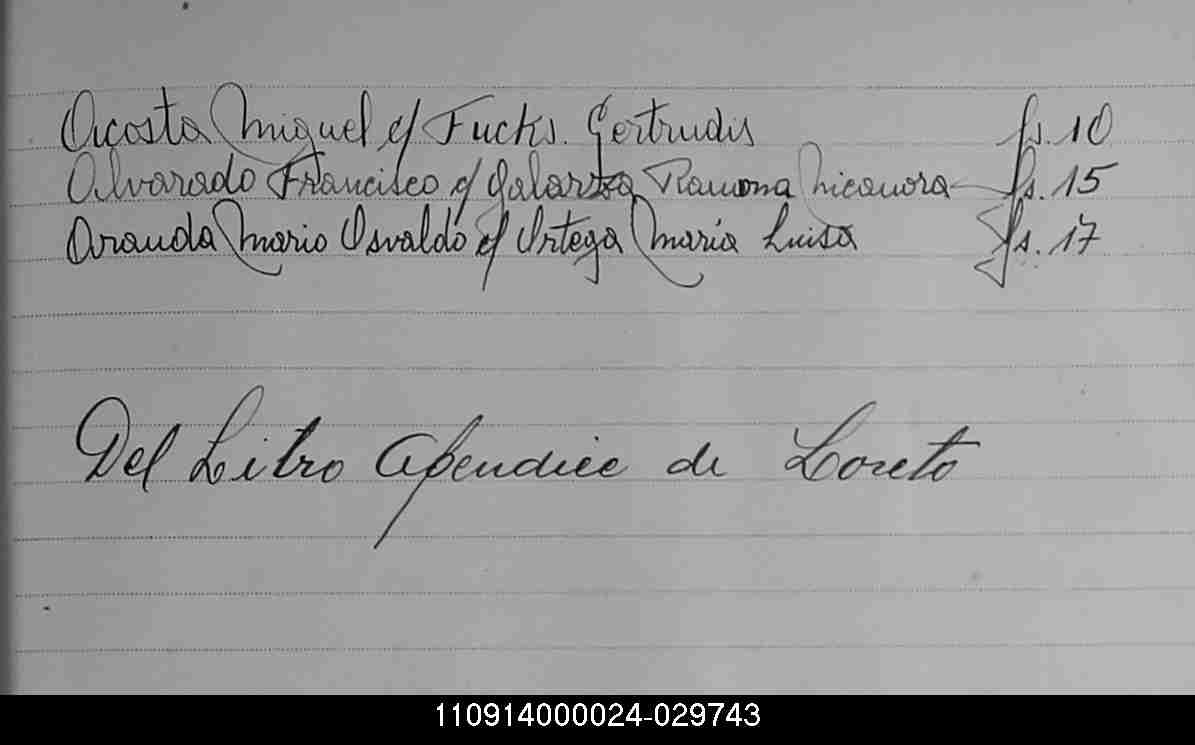 Acosta Miguel c/ Fucks. Gertrudis fs. 10
Alvarado Francisco c/ Galarza Ramona Nicanora fs. 15
Aranda Mario Osvaldo c/ Ortega María Luisa fs. 17
Del Libro Apendice de Loreto
110914000024-029743